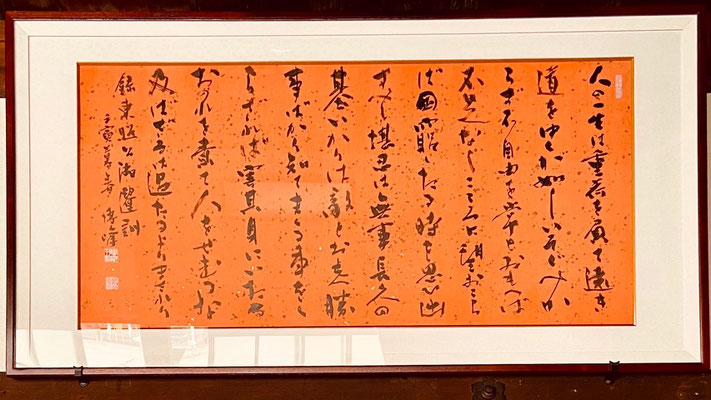 人の一生は重荷を負て遠き
道をゆくが如しいそぐべか
らず不自由を常とおもへば
不足なしこころに望おこら
ば困窮したる時を思ひ出
すべし堪忍は無事長久の
基いかりは敵とおもへ勝
事ばかり知てまくる事をし
らざれば害其身にいたる
おのれを責て人をせむるな
及ばざるは過たるよりまされり
録東照公御遺訓